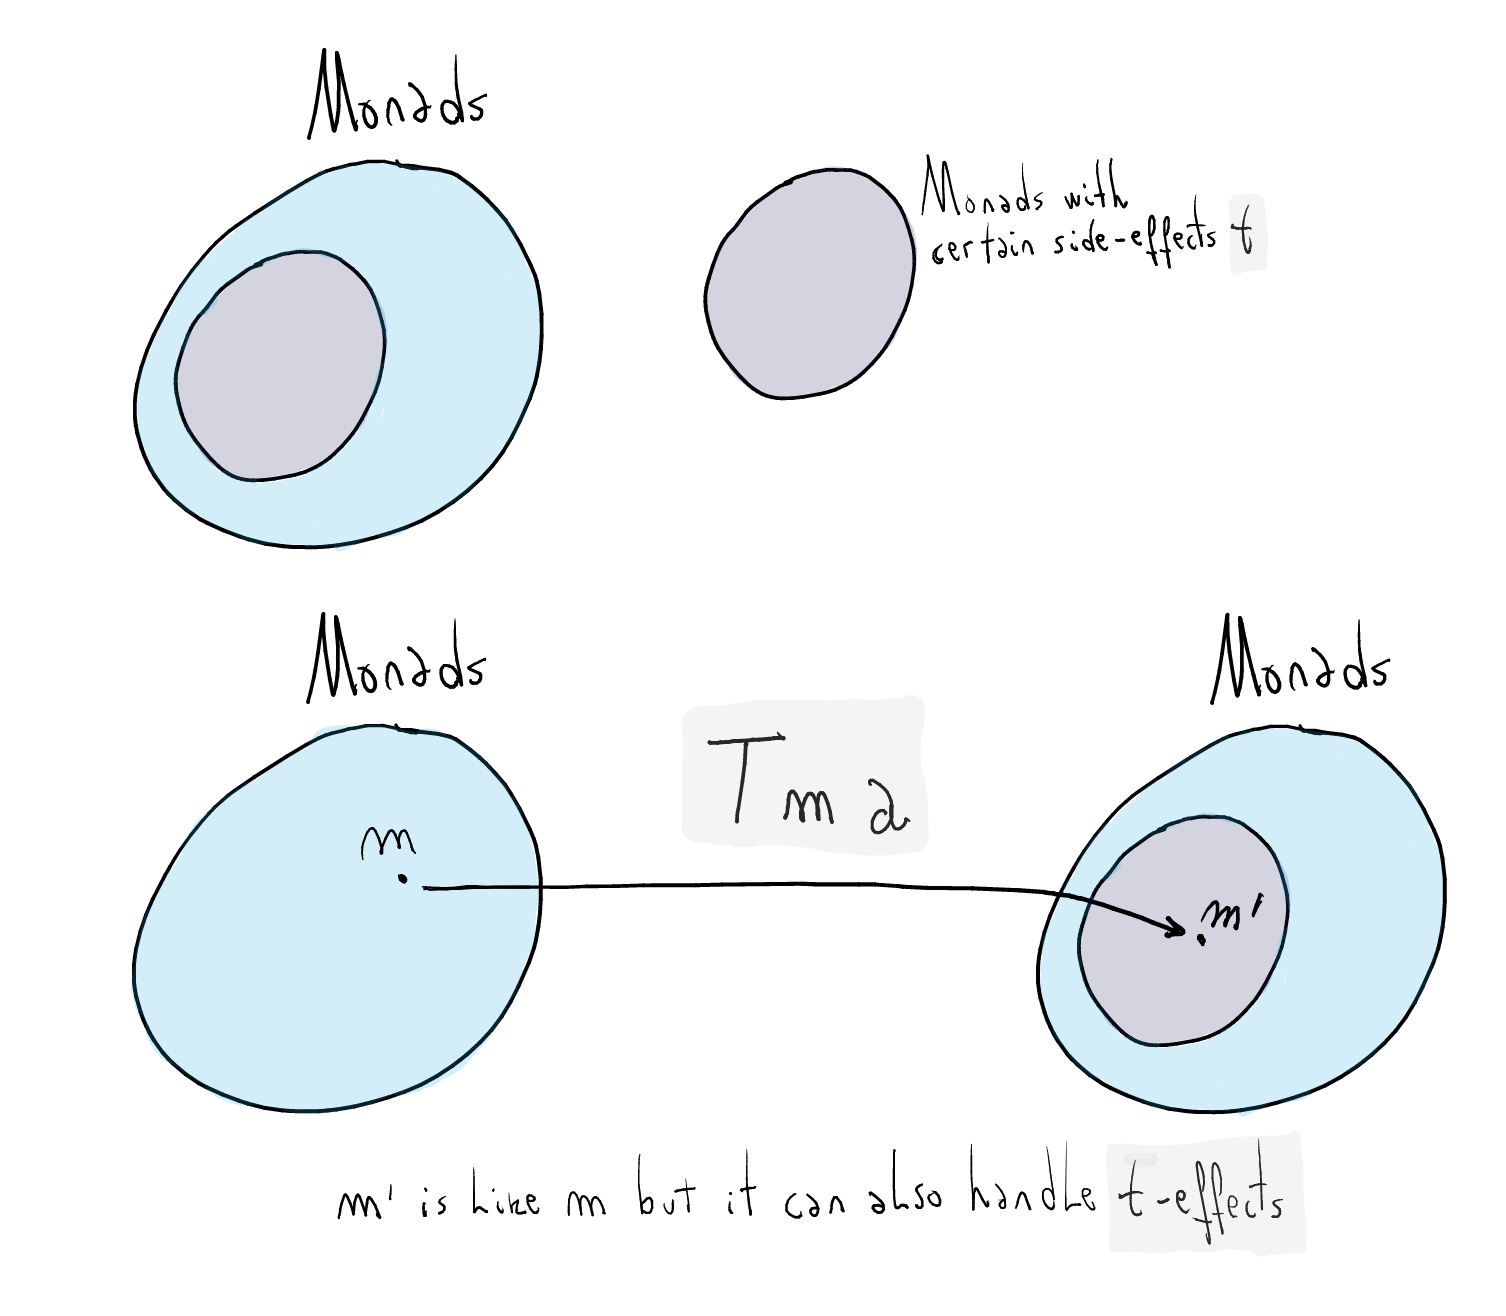 Monads
Monads with
certain side-effects t
Monads
Monads
T m a
m
m'
m' is like m but it can also handle t-effects